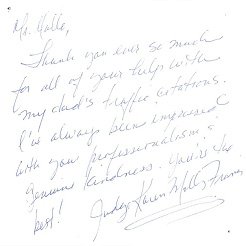 Mr. Halle,
Thank you ever so much
for all of your help with
my dad's traffic citations.
I've always been impressed
with you professionalism &
genuine kindness. You're the
best!
Judge Karen Mills Francis